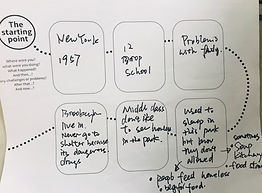 The
starting
point
Where were you?
what were you doing?
What happened?
And then...?
Any challenges or problems?
After that...?
And now...?
New York
1957
12
School
Problems
with
live in.
Never go to
shelter because
its dangerous
drugs
Middle class
don't like
to see homeless
in the park.
Used to
sleep in
this park
but now
they don't
allowed
sometimes
Soup
Kitchens
feed
people feed homeless
food.